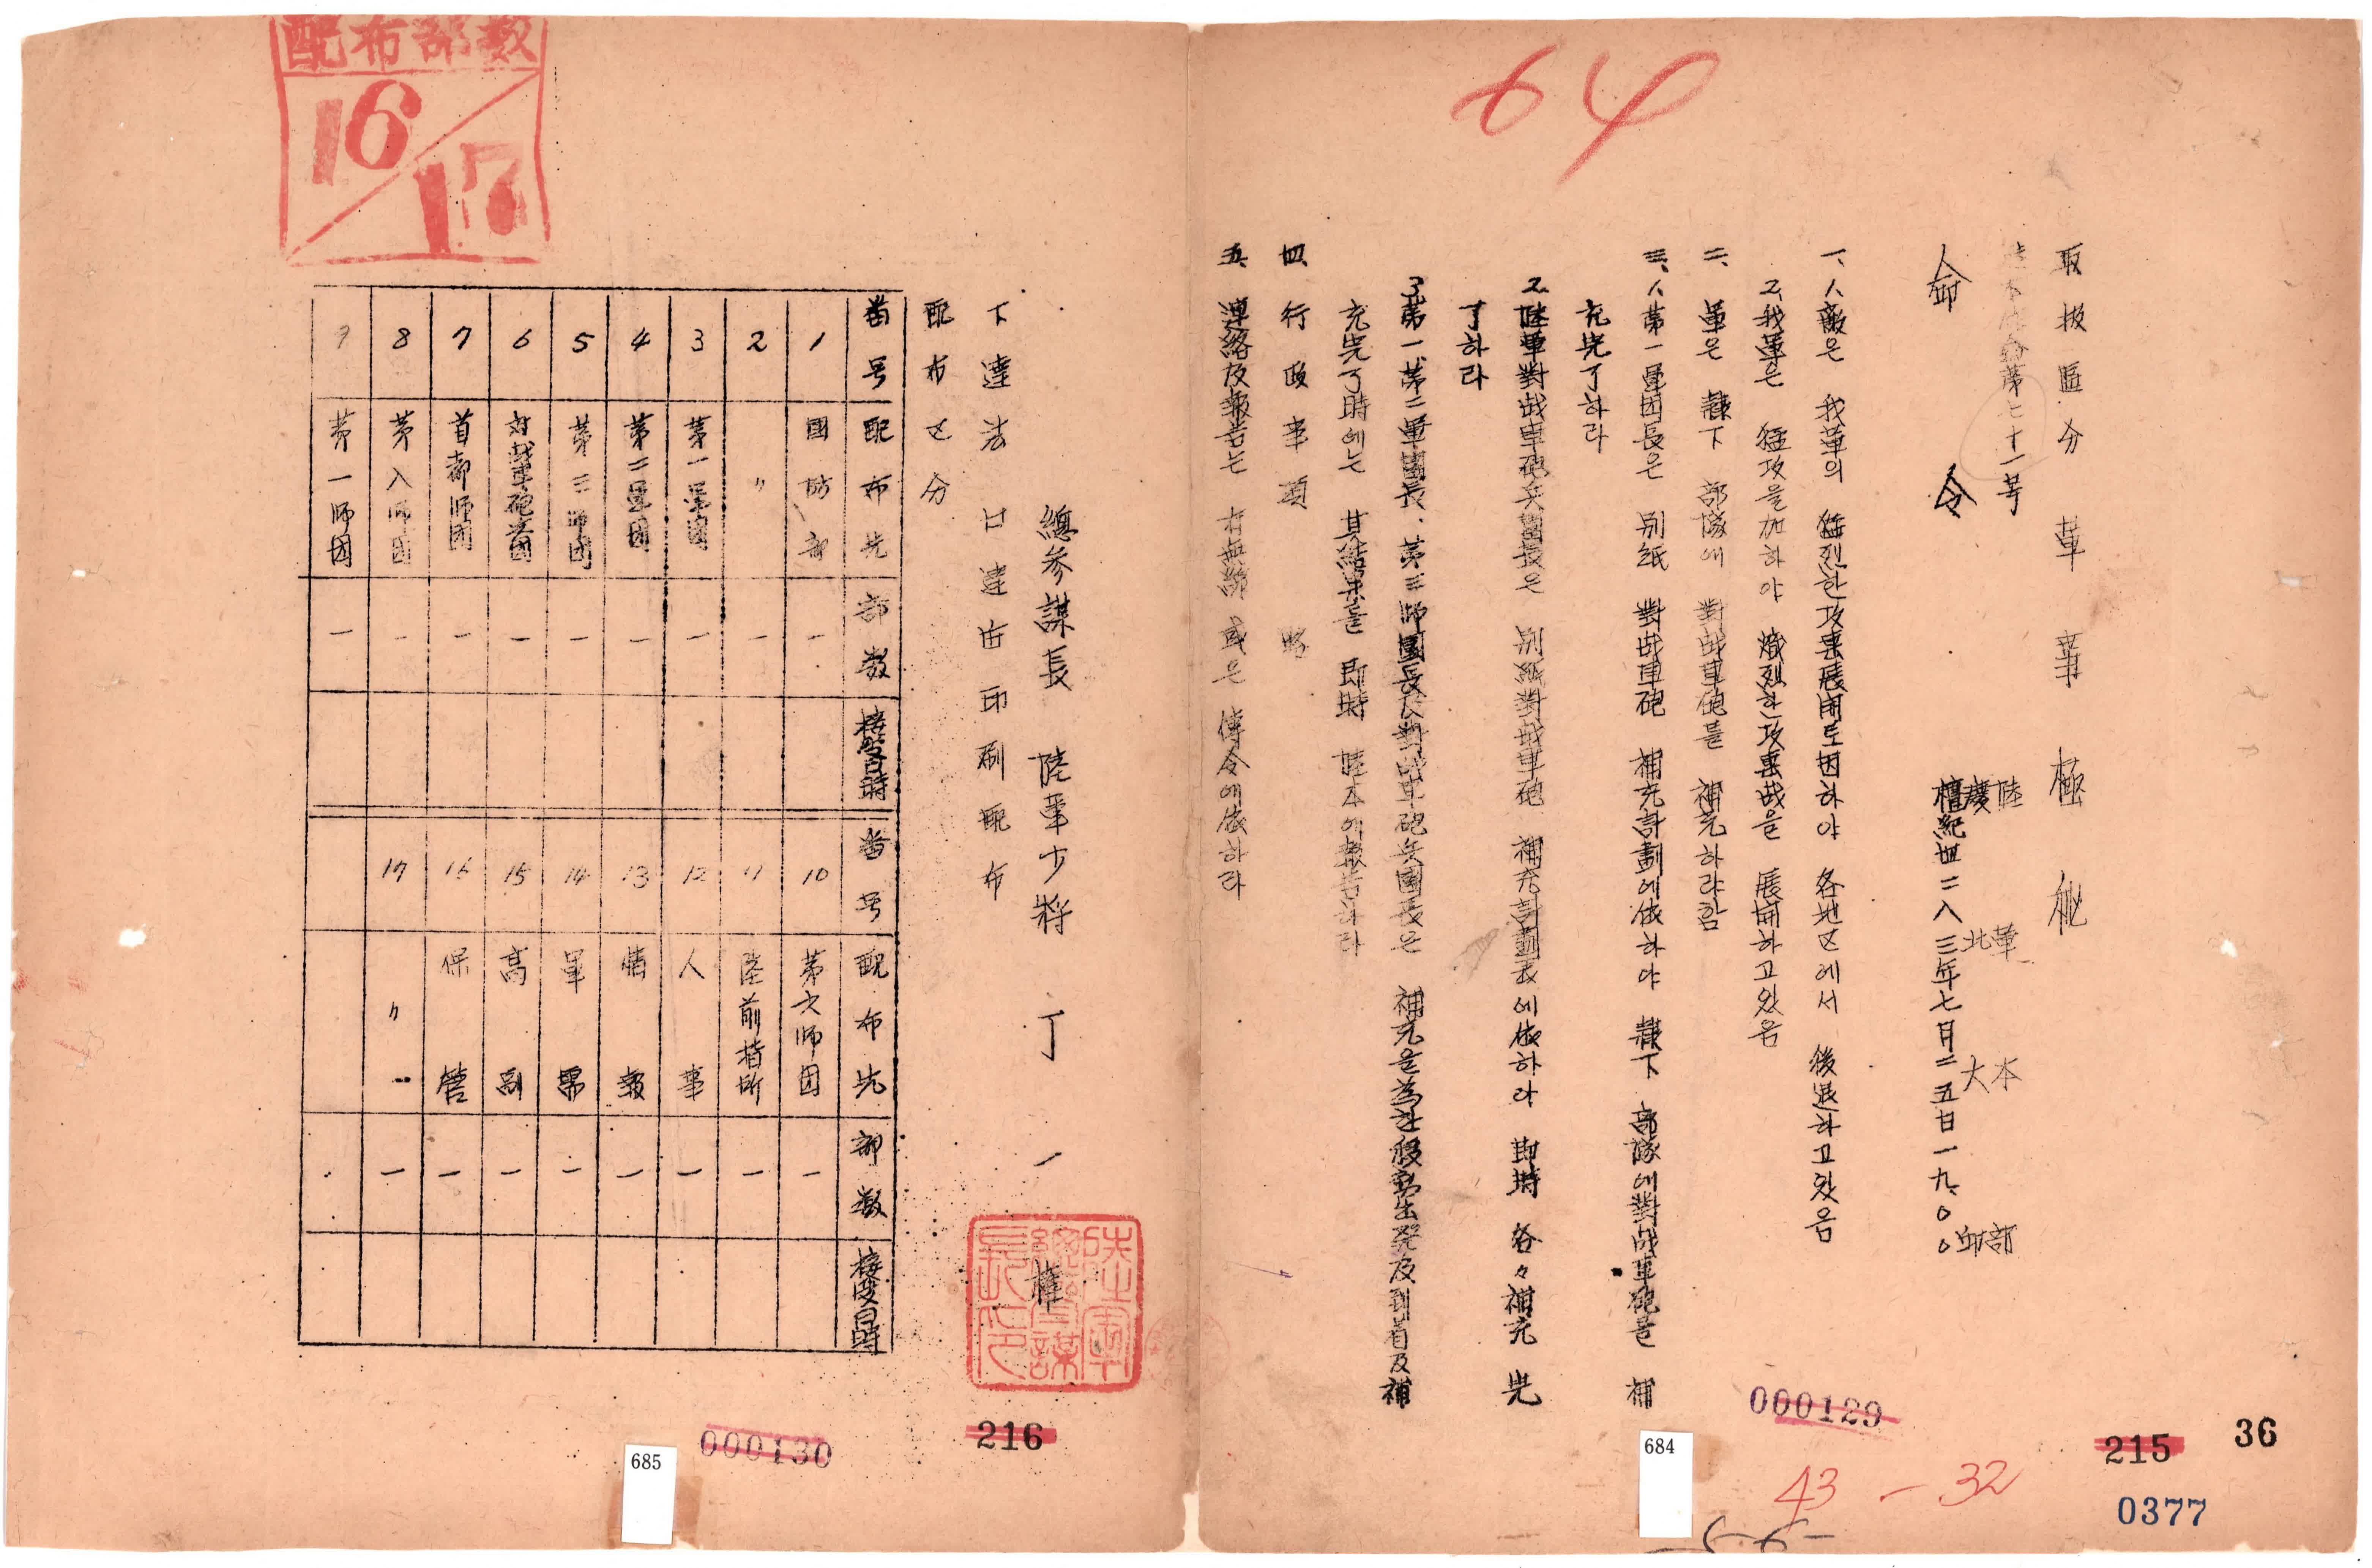 64
取扱區分 軍事極秘
陸本作命第七十一号
陸軍本部
慶北大邱
命令
檀紀四二八三年七月二五日一九、〇〇
一、1、敵은 我軍의 猛烈한 攻擊展開로 因하야 各地区에서 後退하고 있음
2、我軍은 猛攻을 加하야 熾烈한 攻擊战을 展開하고 있음
二、軍은 隷下 部隊에 對战車砲를 補充하랴 함
三、1、第一軍団長은 別紙 對战車砲 補充計劃에 依하야 隷下 部隊에 對战車砲를 補
充完了하라
2、陸軍對战車砲兵團長은 別紙 對战車砲 補充計劃表에 依하라 即時 各々 補充 完
了하라
3、第一、第二軍團長、第三師團長及對战車砲兵團長은 補充을 爲한 移動出発及到着及補
充完了時에는 其結果를 即時 陸本에 報告하라
四、行政事項 略
五、連絡及報告는 有無線 或은 傳令에 依하라
000129
684
43-32
215
36
0377
總参謀長 陸軍少将 丁一權
陸軍總參謀長印
下達法 口達后印刷配布
配布区分
番号 配布先 部数 接受日時 番号 配布先 部数 接受日時
1 國防部 一 10 第六师団 一
2 〃 一 11 陸前指所 一
3 第一軍團 一 12 人事 一
4 第二軍團 一 13 情報 一
5 第三师団 一 14 軍需 一
6 対战車砲兵團 一 15 高副 一
7 首都师団 一 16 保管 一
8 第八师団 一 17 〃 一
9 第一师団 一
配布部数
16/17
685
000130
216